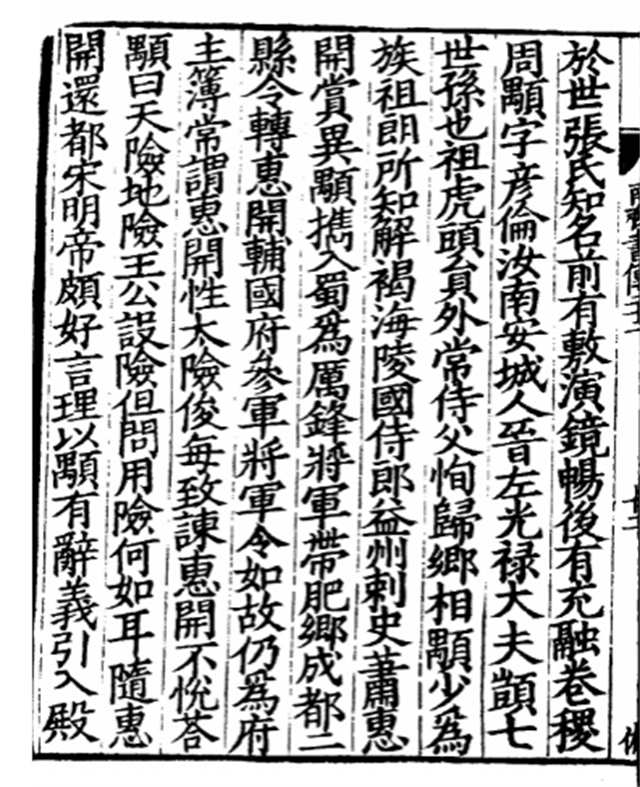 於世張氏知名前有敷演鏡暢後有充融卷稷
周顒字彦倫汝南安城人晉左光禄大夫顗七
世孫也祖虎頭貟外常侍父恂歸鄉相顒少爲
族祖朗所知解褐海陵國侍郎益州刺史蕭惠
開賞異顒擕入蜀爲厲鋒將軍帶肥鄉成都二
縣令轉惠開輔國府參軍將軍令如故仍爲府
主簿常謂惠開性太險俊每致諫惠開不悅荅
顒曰天險地險王公設險但問用險何如耳隨惠
開還都宋明帝頗好言理以顒有辭義引入殿